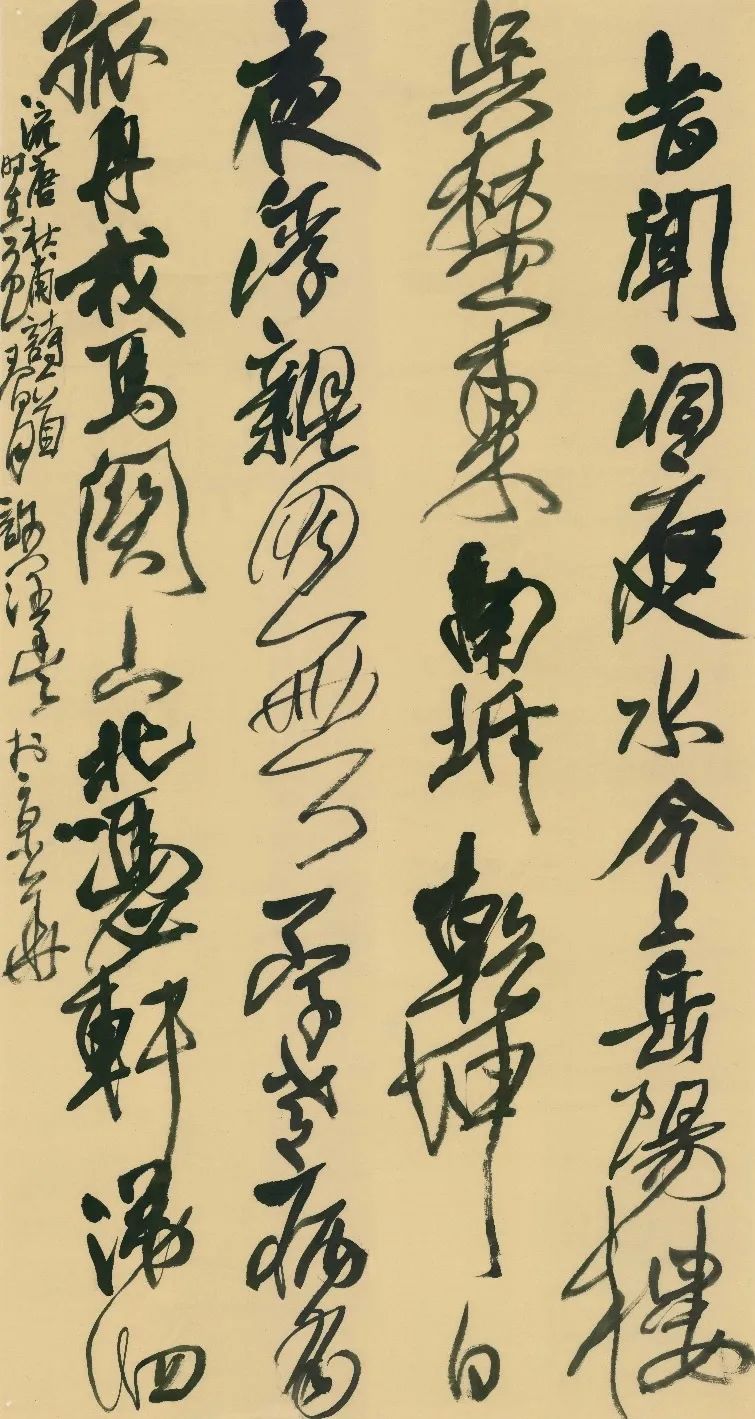 昔聞洞庭水今上岳陽樓
吳楚東南坼乾坤日
夜浮親朋無一字老病有
孤舟戎馬關山北憑軒涕泗
流唐杜甫詩一首
时在乙巳春月於京華